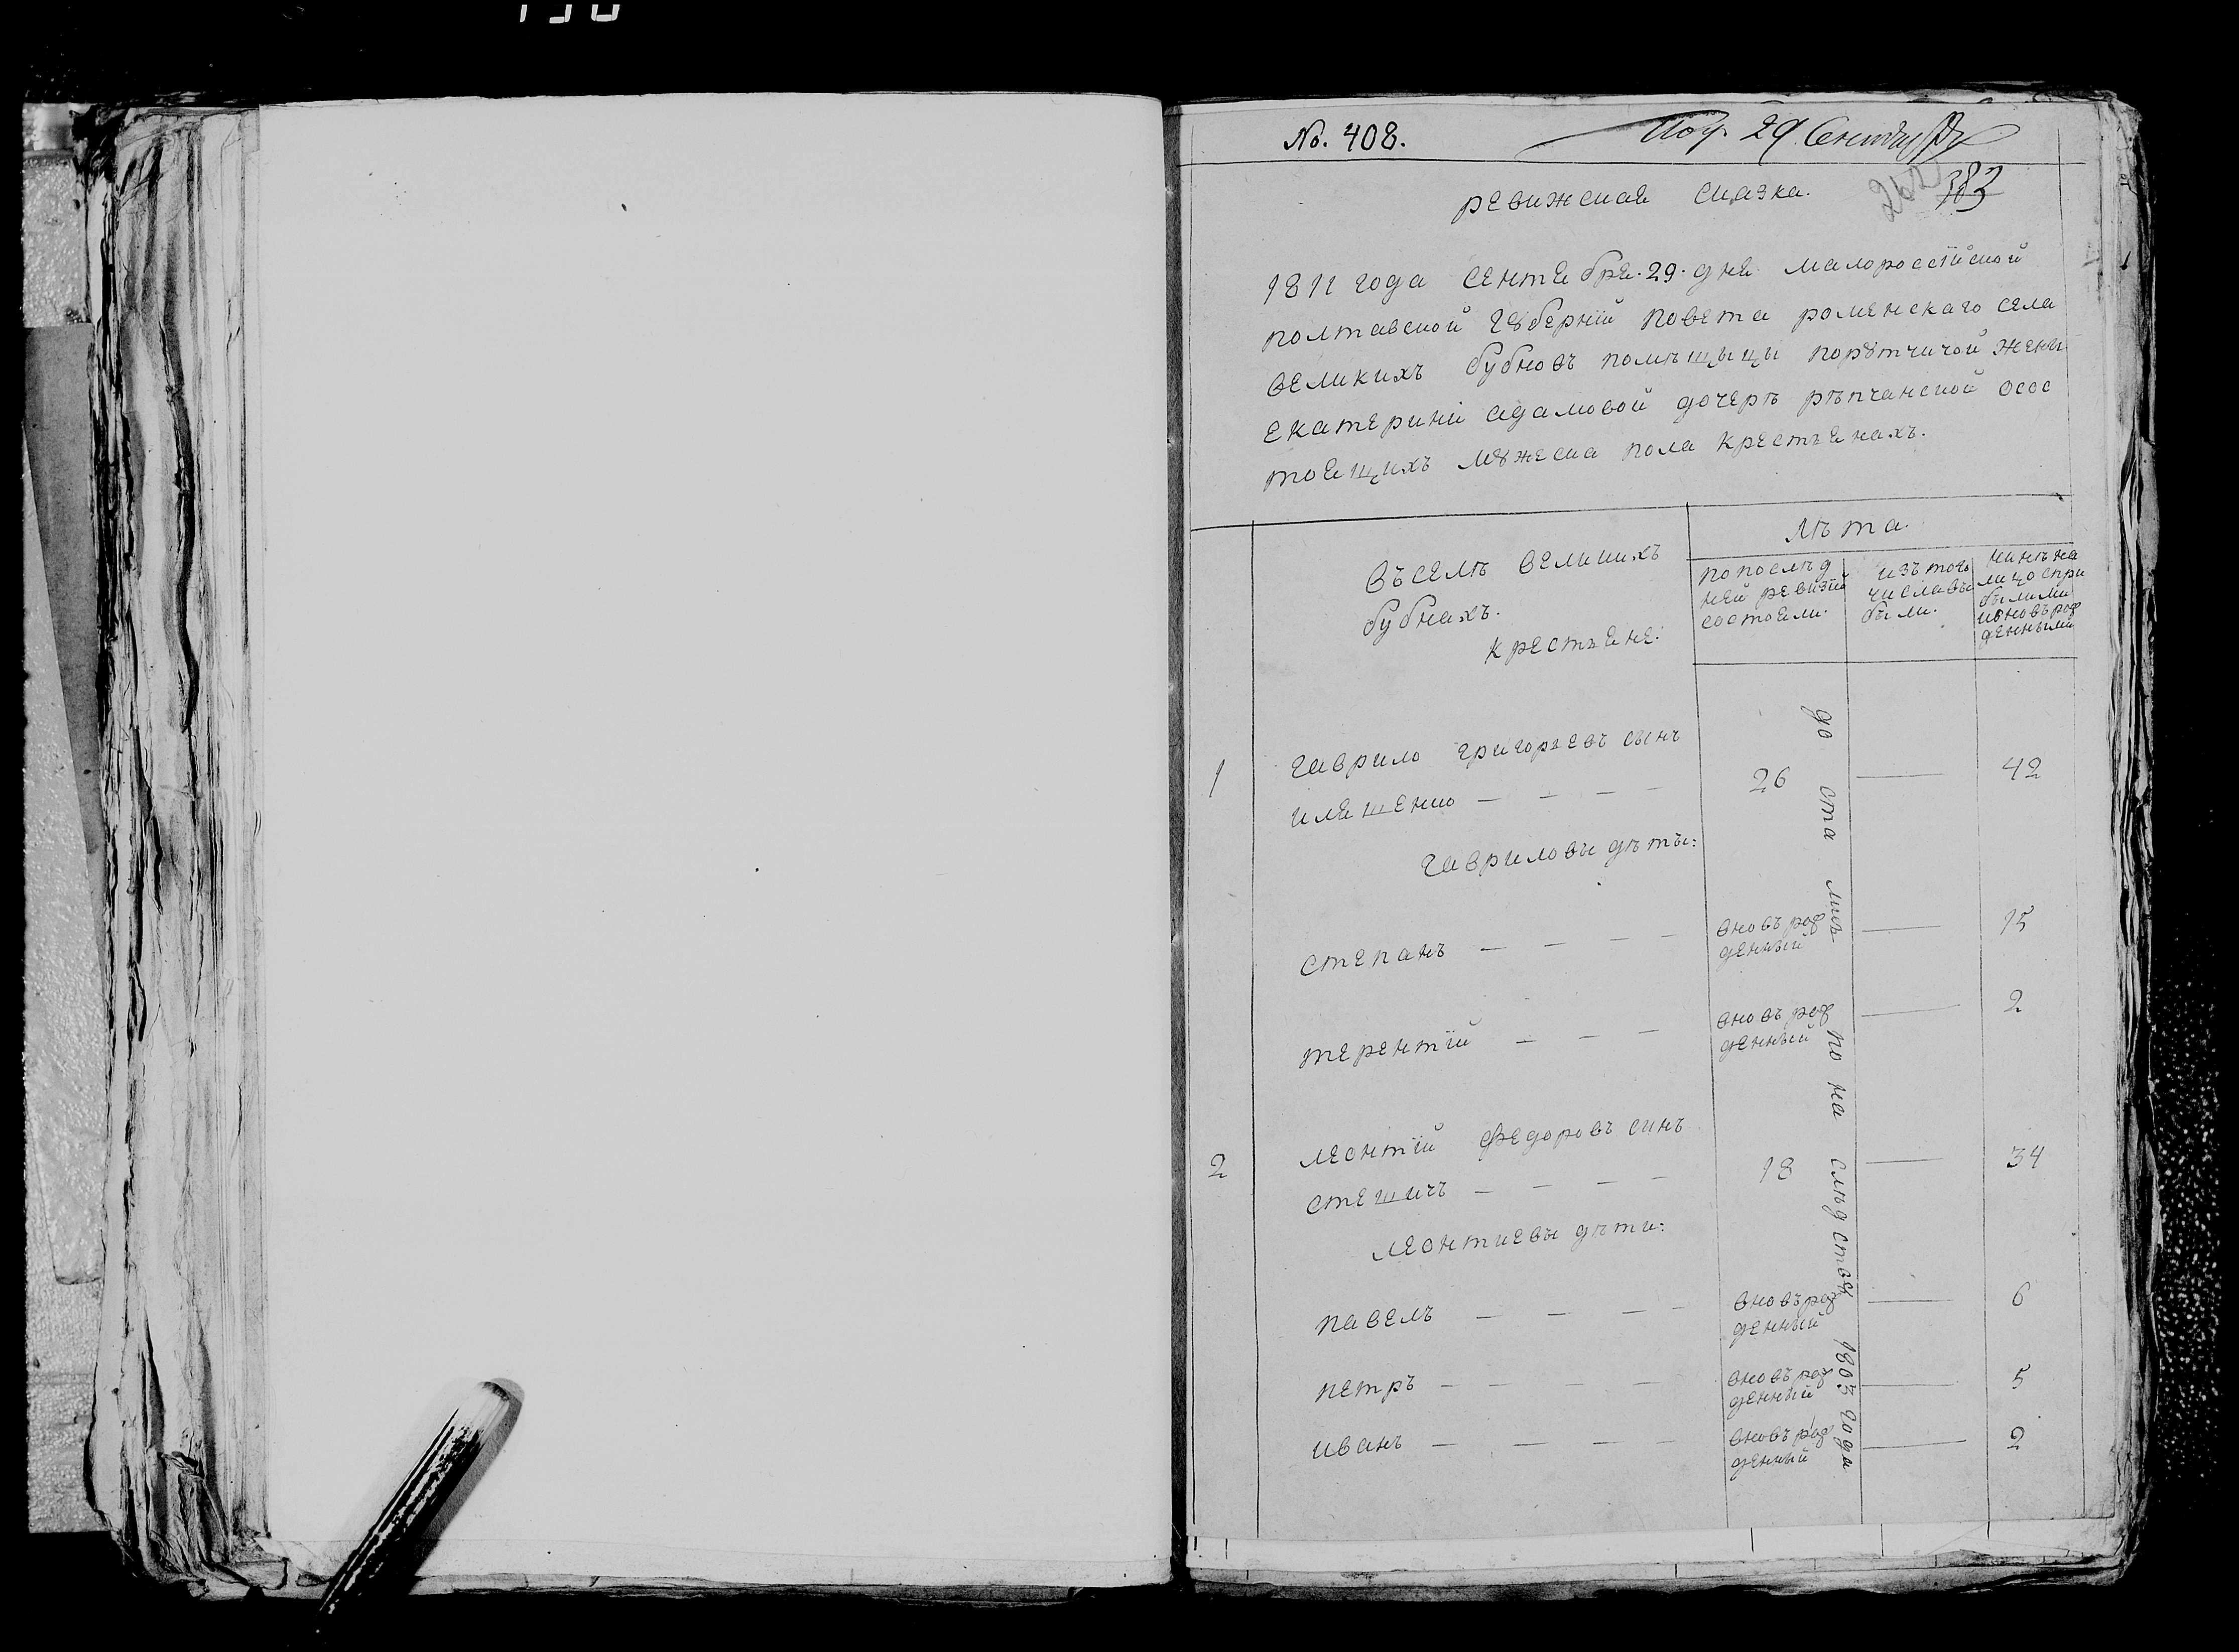 No. 408.
29 Сентября
383
ревижская сказка.
1811 года сентября. 29. дня малороссїйской
полтавской губернїи повета роменскаго села
великихъ бубновъ помѣщыцы порутчичой жени
екатерини адамовой дочерѣ рѣпчанской осос
тоящихъ мужеска пола крестъянахъ.
Лѣта.
Въселѣ великихъ
бубнахъ.
крестъяне:
попослѣд
ней ревизїи
состояли.
изътого
числавы
были.
нинѣна
лицоспри
былыми
ивновърож
денными
1 гаврило григорьевъ сынъ
иляшенко — — — — 26 — 42
гавриловы дѣты:
степанъ — — — — вновърож
денный — 15
терентїй — — — вновърож
денный — 2
2 леонтїй федоровъ синъ
стешичъ — — — — 18 — 34
леонтиевы дѣти:
павелъ — — — — вновърож
денный — 6
петръ — — — — вновърож
денный — 5
иванъ — — — — вновърож
денный — 2
до ста по на слѣдством 1803 года